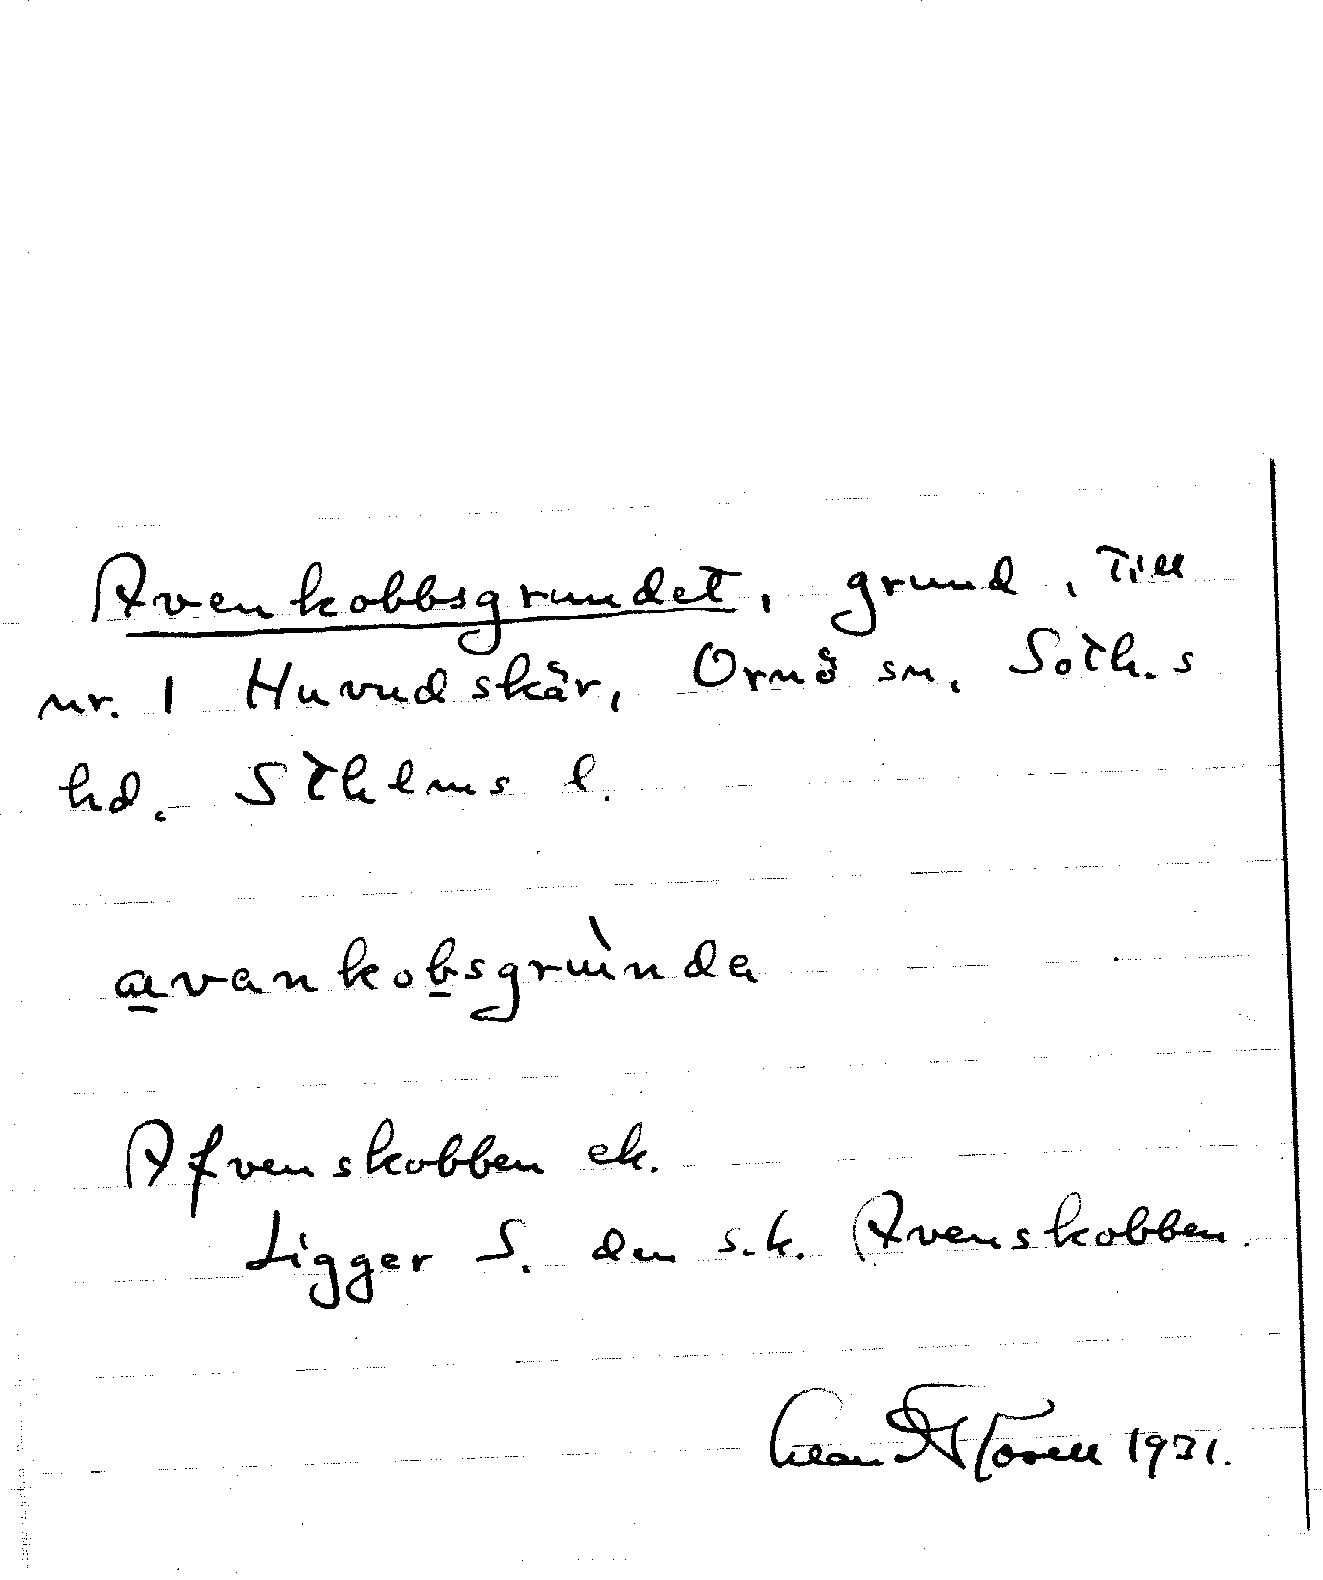 Avenkobbsgrundet, grund, till
nr. 1 Huvudskär, Ornö sn, Soth.s
hd. Sthlms l.
avankobsgrùnda
Afvenskobben ek.
Ligger S. den s.k. Avenskobben.
1931.